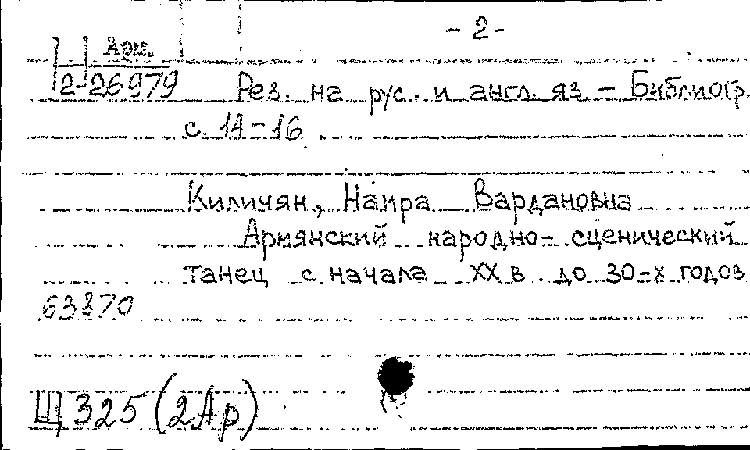 - 2 -
Арм.
2-26979
Рез. на рус. и англ. яз. - Библиогр.
с. 14-16
Киличян, Наира Вардановна
Армянский народно-сценический
танец с начала XX в. до 30-х годов
63870
Щ325(2Ар)